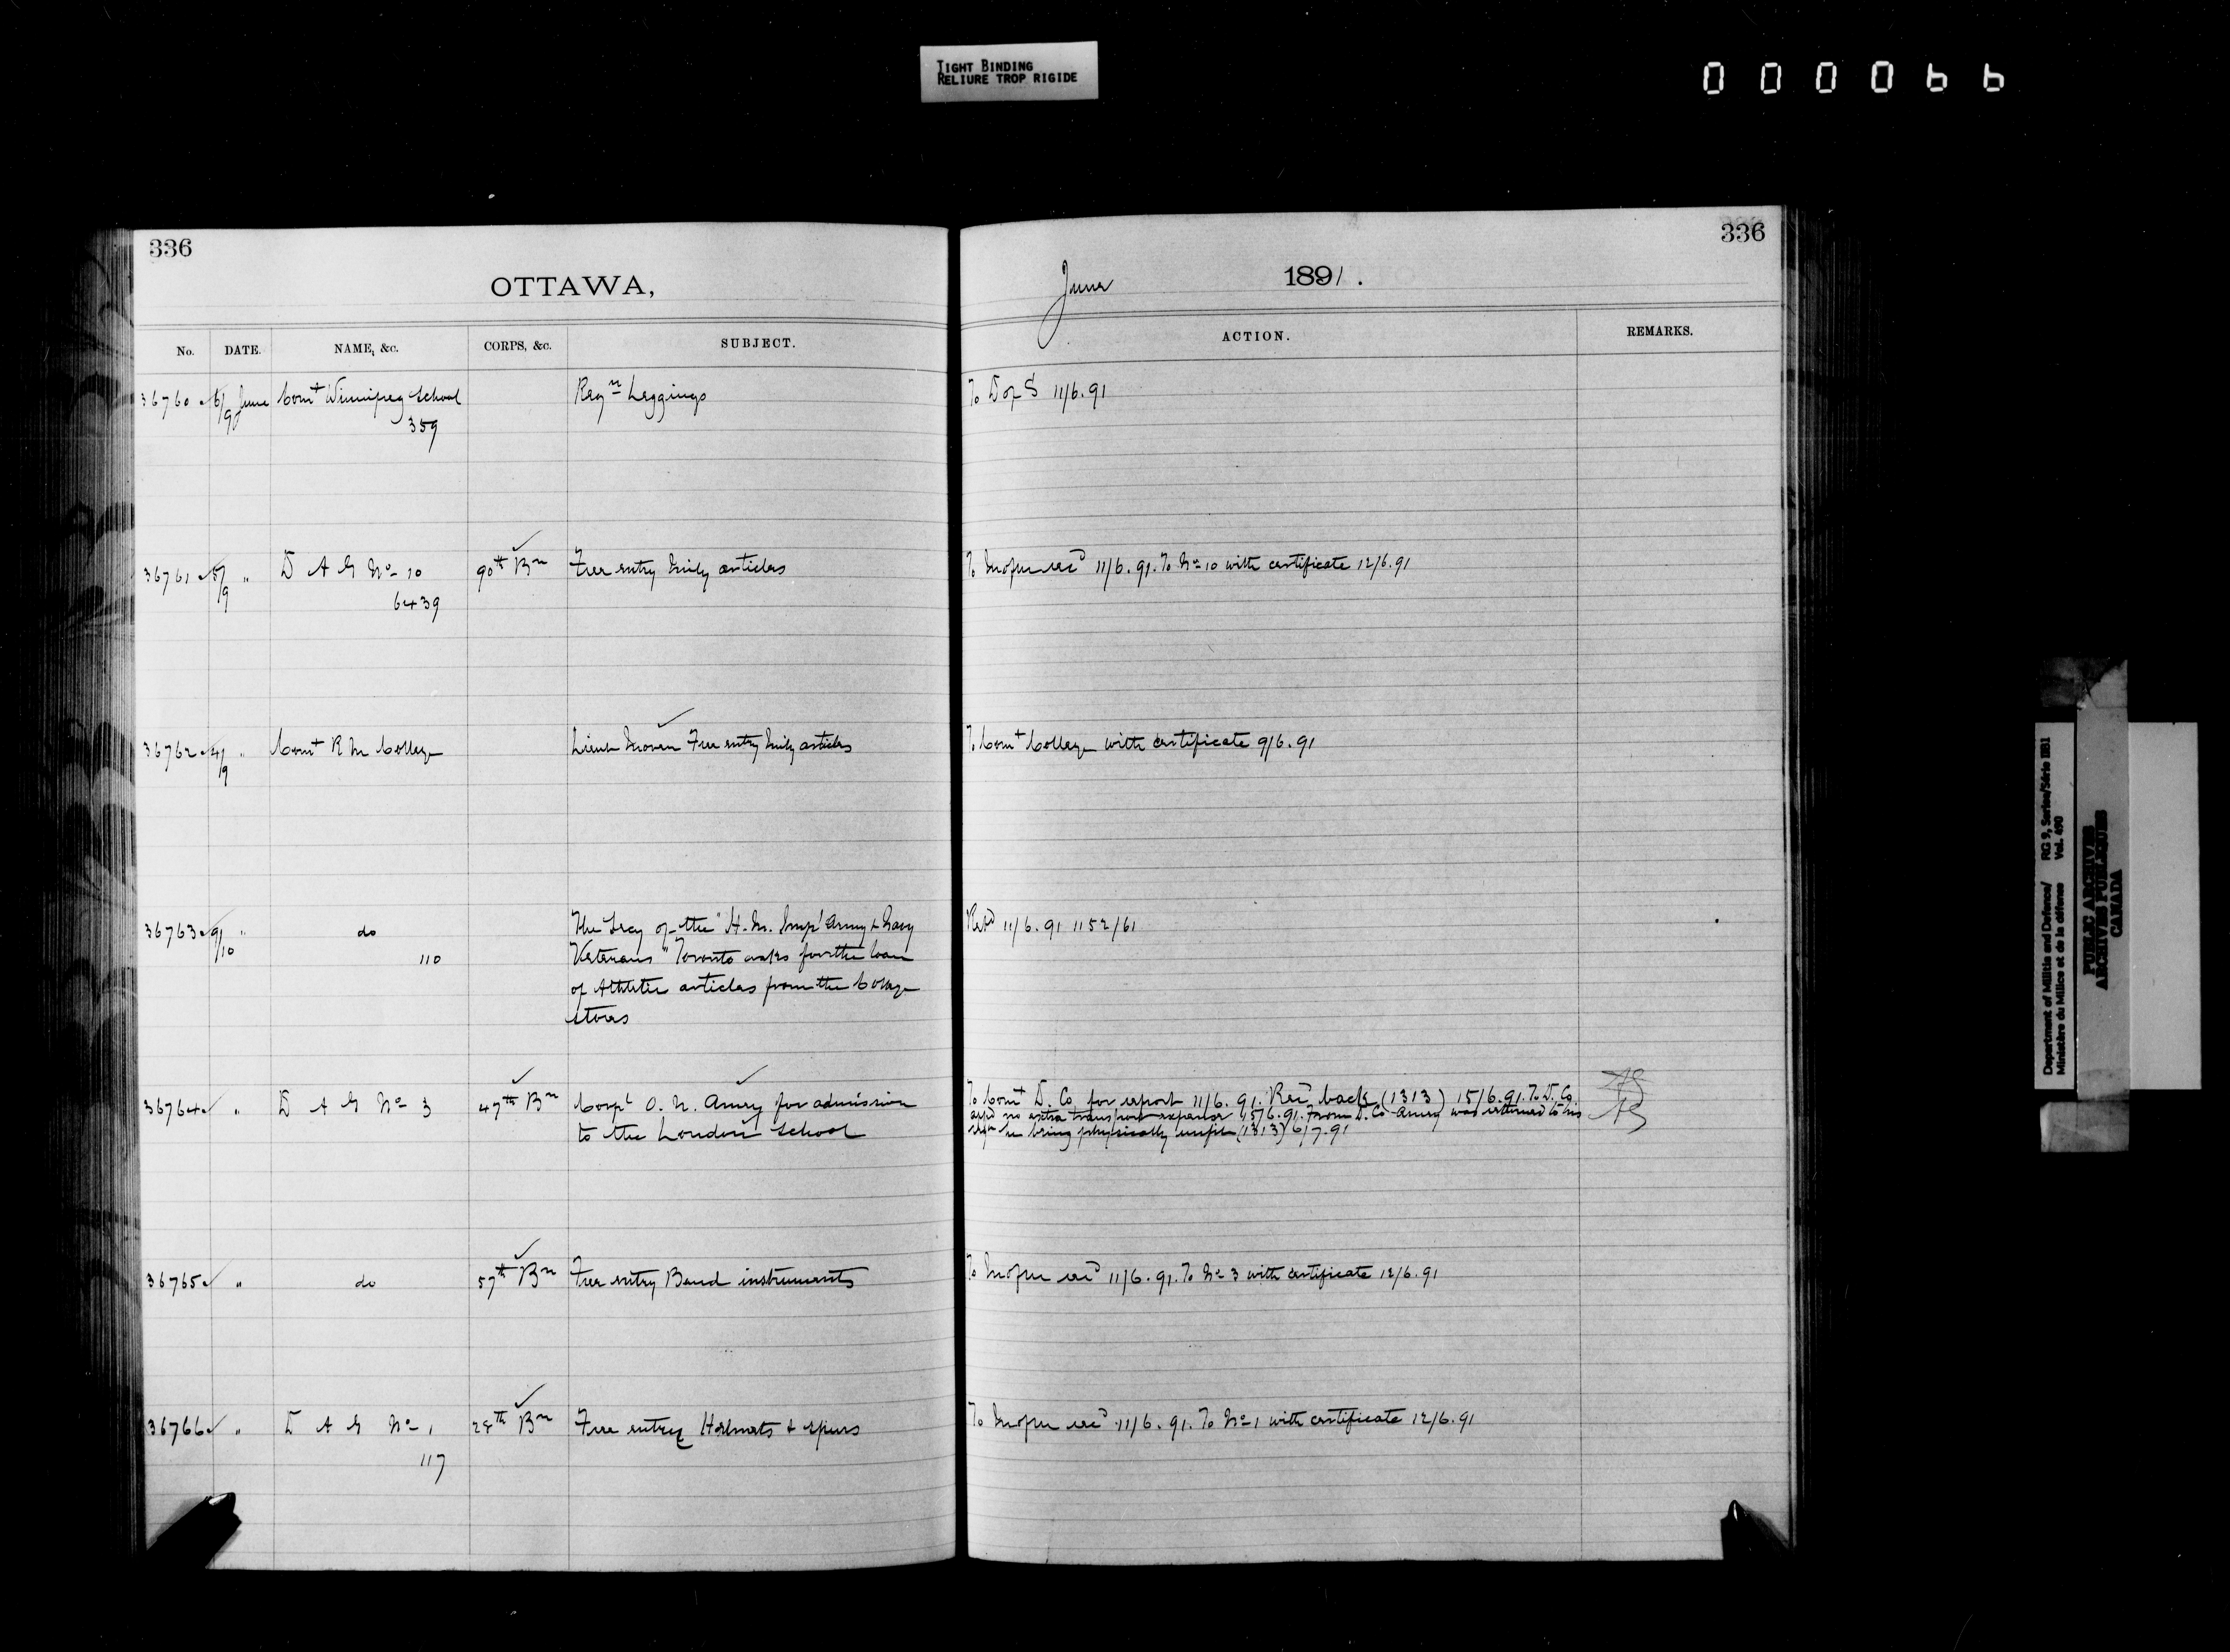 TIGHT BINDING
RELIURE TROP RIGIDE
000066
336
OTTAWA,
No. DATE. NAME, &c. CORPS, &c. SUBJECT.
36760 6/9 June Comt Winnipeg School Reqn Leggings
359
36761 5/9 " D A G No 10 90th Bn Free entry Mily articles
6439
36762 4/9 " Comt R M College Lieut Free entry Mily articles
36763 9/10 " do The Secy of the "H. M. Impl Army & Navy
110 Veterans" Toronto asks for the loan
of Athletic articles from the College
stores
36764 " D A G No 3 47th Bn Corpl O. N. Amey for admission
to the London School
36765 " do 57th Bn Free entry Band instruments
36766 " D A G No 1 28th Bn Free entry Helmets & spurs
117
336
June 1891.
ACTION. REMARKS.
To D of S 11/6.91
To recd 11/6.91. To No 10 with certificate 12/6.91
To Comt College with certificate 9/6.91
Repd 11/6.91 1152/61
To Comt D. Co. for report 11/6.91. Recd back (1313) 15/6.91. To D. Co.
no extra transport expense 15/6.91. From D. Co Amey was returned to his
he being physically unfit (1313) 6/7.91
To recd 11/6.91. To No 3 with certificate 12/6.91
To recd 11/6.91. To No 1 with certificate 12/6.91
Department of Militia and Defence/ RG 9, Series/Série IIB1
Ministère du Milice et de la défense Vol. 490
PUBLIC ARCHIVES
ARCHIVES PUBLIQUES
CANADA